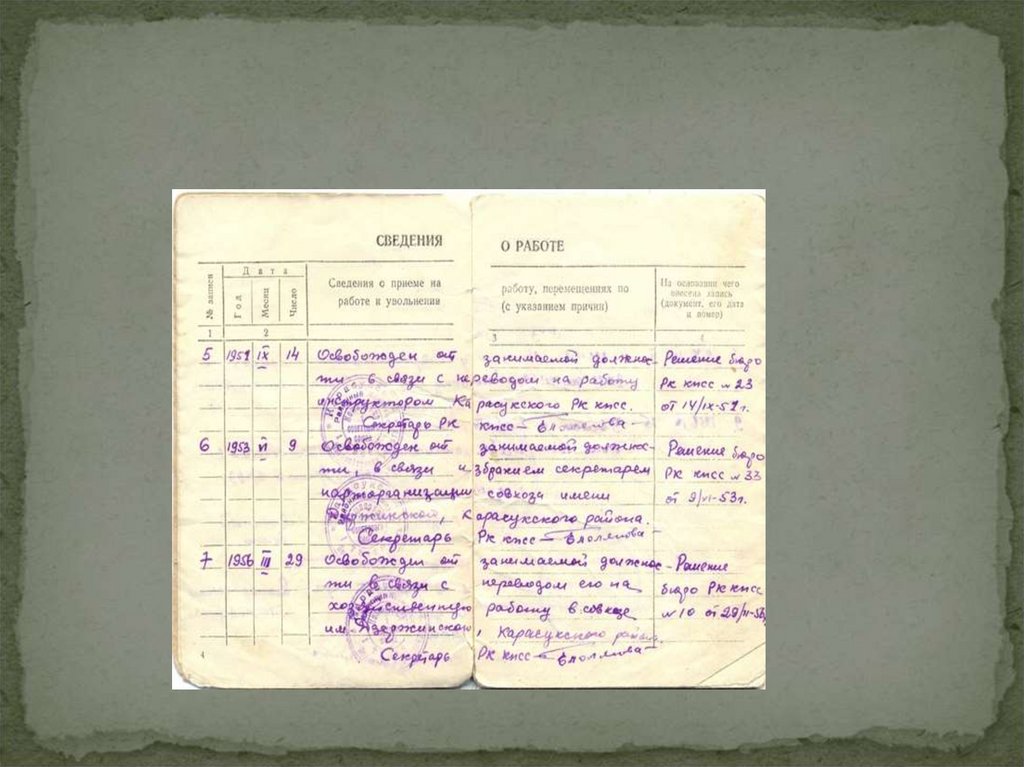 СВЕДЕНИЯ О РАБОТЕ
№ записи
Дата
Год
Месяц
Число
Сведения о приеме на работу, перемещениях по
работе и увольнении (с указанием причин)
На основании чего
внесена запись
(документ, его дата
и номер)
1 2 3 4
5 1951 IX 14 Освобожден от занимаемой должнос- Решение бюро
ти в связи с переводом на работу РК кпсс №23
инструктором Карасукского РК кпсс. от 14/IX-51г.
Секретарь РК кпсс
6 1953 VI 9 Освобожден от занимаемой должнос- Решение бюро
ти, в связи избранием секретарем РК кпсс №33
парторганизации совхоза имени от 9/VI-53г.
Дзержинского, Карасукского района.
Секретарь РК кпсс
7 1956 III 29 Освобожден от занимаемой должнос- Решение
ти в связи с переводом его на бюро РК кпсс
хозяйственную работу в совхоз №10 от 29/
им Дзержинского, Карасукского района.
Секретарь РК кпсс
4